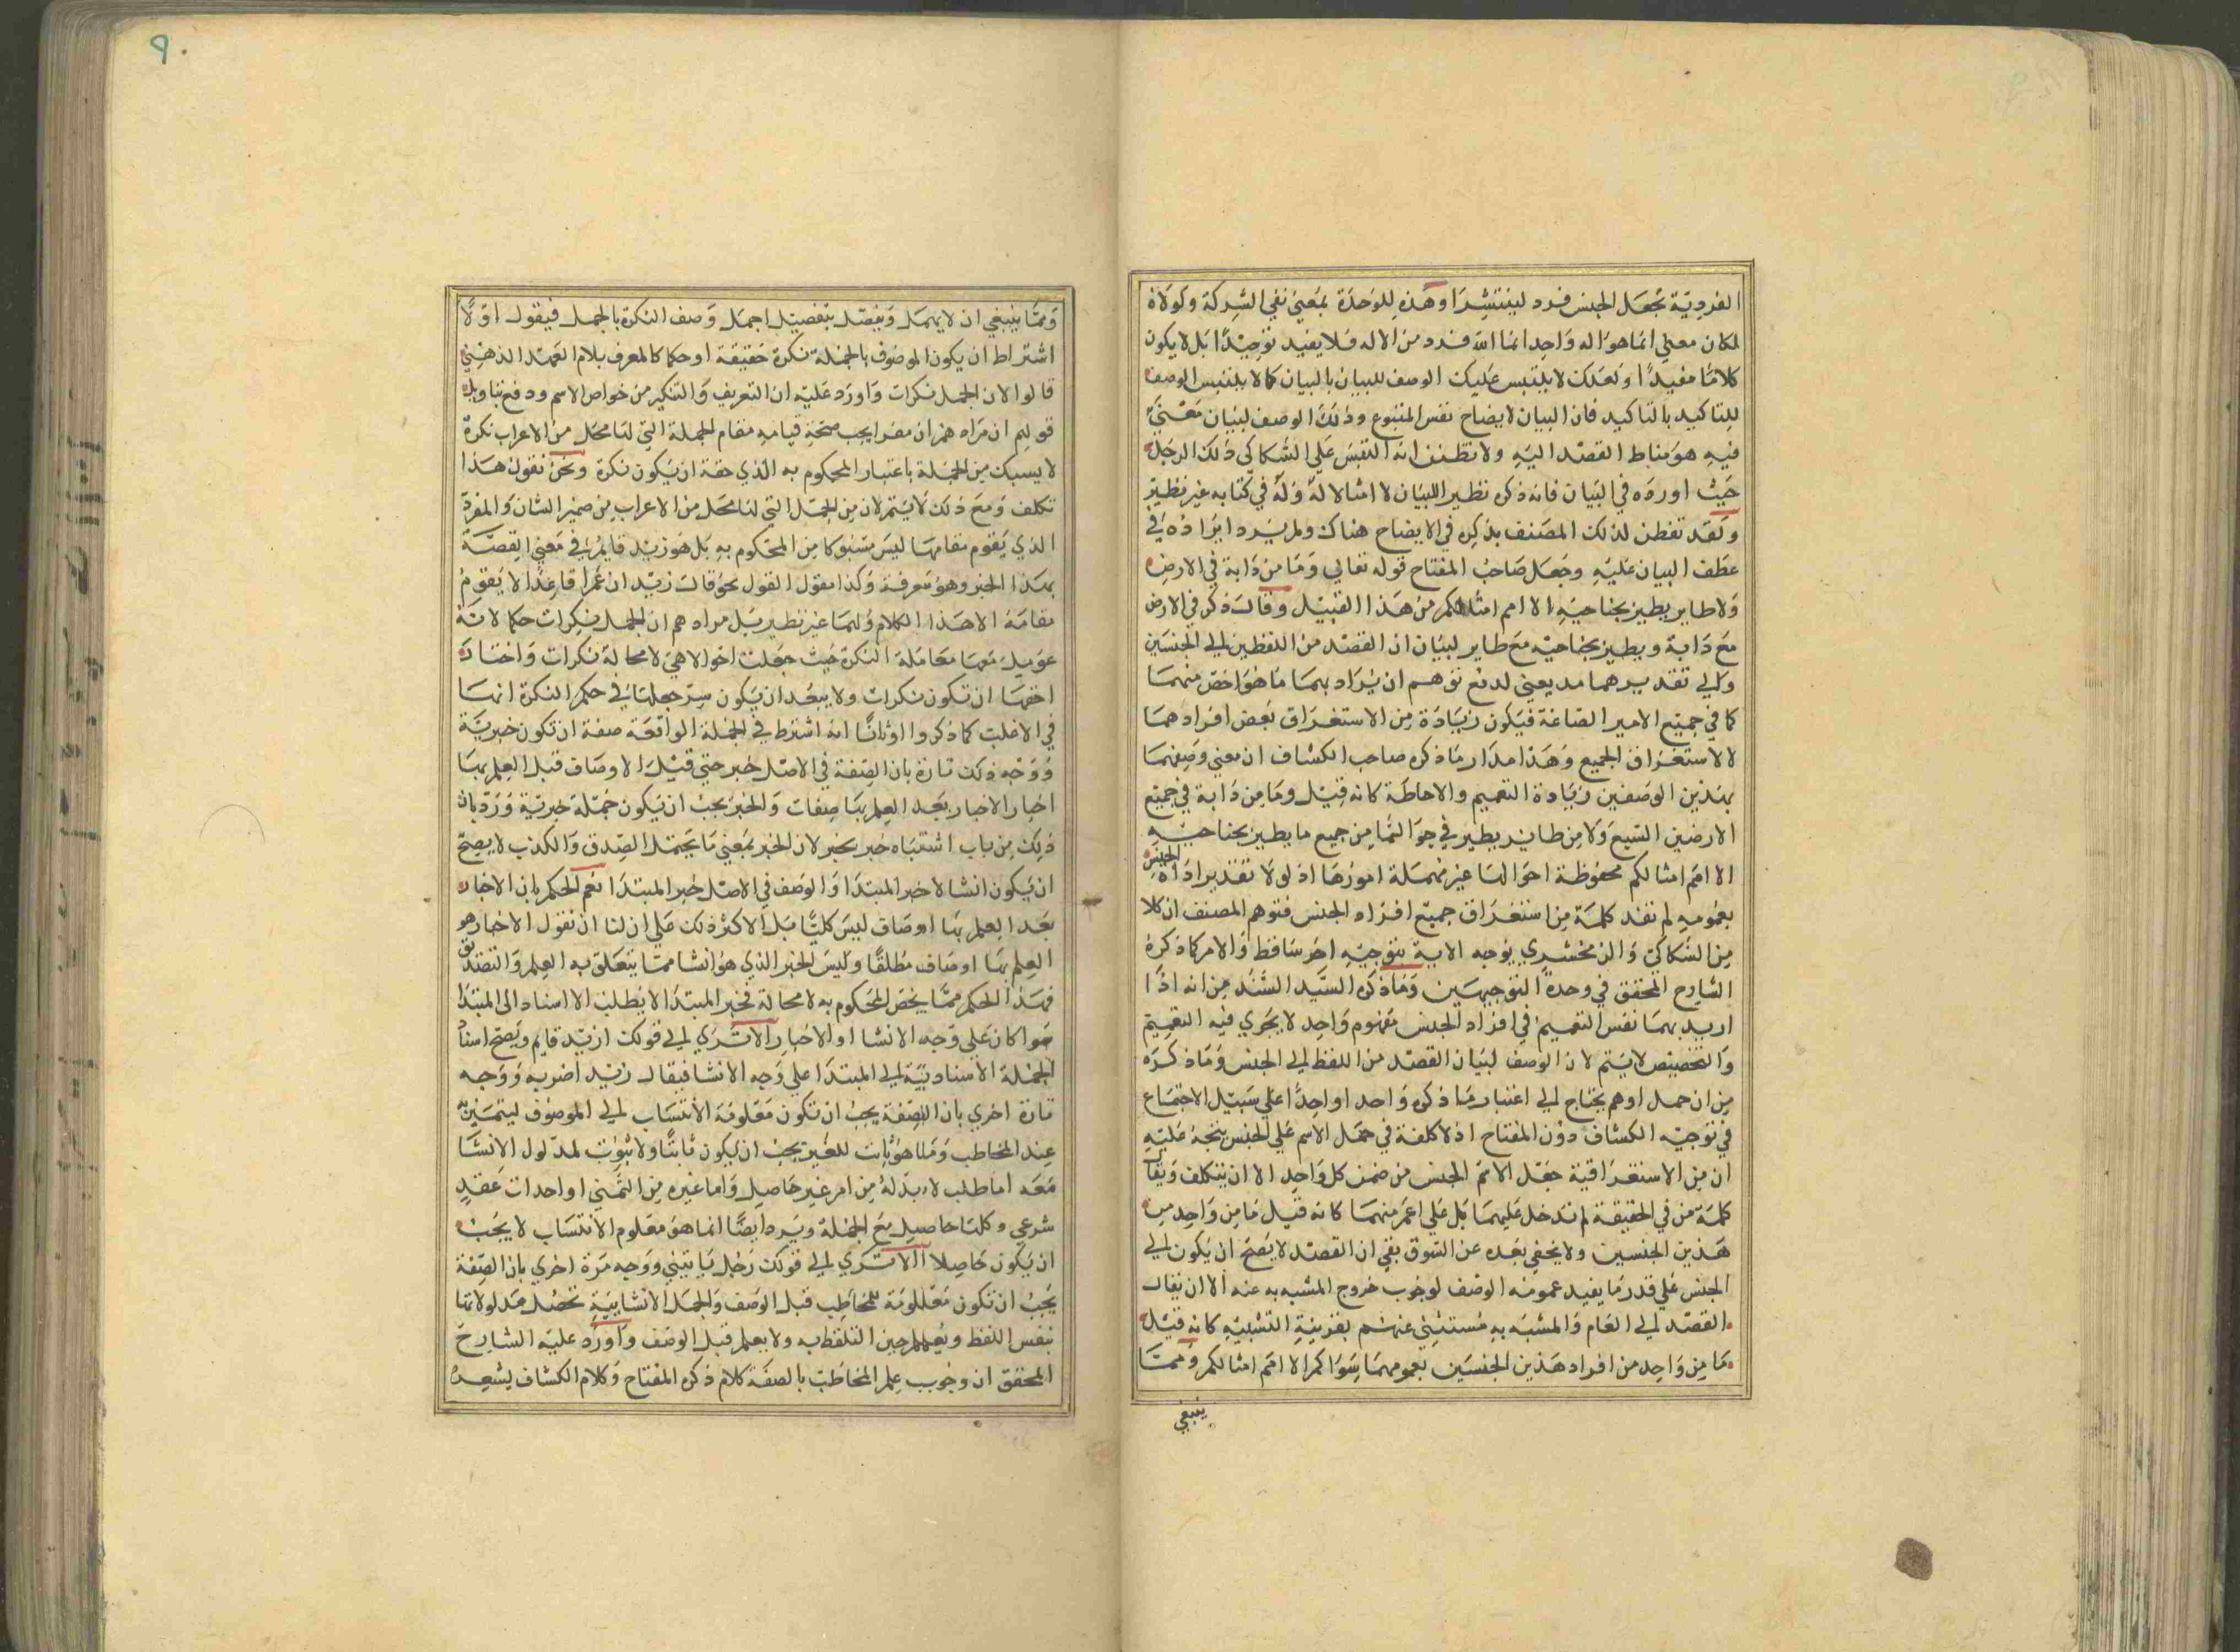 الفردية تجعل الجنس فرد لينتشرا وهذه للوحدة بمعني نفي الشركة ولولاه
لكان معني انما هو اله واحد انما الله فرد من الاله فلا يفيد توحيدا بل لا يكون
كلاما مفيدا ولعلك لا يلتبس عليك الوصف للبيان بالبيان كما لا يلتبس الوصف
للتاكيد بالتاكيد فان البيان لايضاح نفس المتبوع وذلك الوصف لبيان معني
فيه هو مناط القصد اليه ولا تظنن انه التبس علي السكاكي ذلك الرجل
حيث اورده في البيان فانه ذكره نظير اللبيان لا مثالا له وله في كتابه غير نظير
ولقد تفطن لذلك المصنف بذكره في الايضاح هناك ولم يرد ايراده في
عطف البيان عليه وجعل صاحب المفتاح قوله تعالي وما من دابة في الارض
ولا طاير يطير بجناحيه الا امم امثالكم من هذا القبيل وقال ذكر في الارض
مع دابة ويطير بجناحيه مع طاير لبيان ان القصد من اللفظين الي الجنسين
والي تقديرهما مد يعني لدفع توهم ان يراد بهما ما هو اخص منهما
كما في جميع الامير الصاغة فيكون زيادة من الاستغراق بعض افرادهما
لا لاستغراق الجميع وهذا مدار ما ذكره صاحب الكشاف ان معني وصفهما
بهذين الوصفين زيادة التعميم والاحاطة كانه قيل وما من دابة في جميع
الارضين السبع ولا من طاير يطير في جو السما من جميع ما يطير بجناحيه
الا امم امثالكم محفوظة احوالها غير مهملة امورها اذ لولا تقدير اداة الجنس
بعمومه لم تفد كلمة من استغراق جميع افراد الجنس فتوهم المصنف ان كلا
من السكاكي والزمخشري يوجه الاية بتوجيه اخر ساقط والامر كما ذكره
الشارح المحقق في وحدة التوجيهين وما ذكره السيد السند من انه اذا
اريد بهما نفس التعميم في افراد الجنس مفهوم واحد لا يجري فيه التعميم
والتخصيص لا يتم لان الوصف لبيان القصد من اللفظ الي الجنس وما ذكره
من ان حمل اوهم يحتاج الي اعتبار ما ذكره واحد اواحدا علي سبيل الاجتماع
في توجيه الكشاف دون المفتاح اذ لا كلفة في حمل الاسم علي الجنس يتجه عليه
ان من الاستغراقية جعل الاسم الجنس من ضمن كل واحد الا ان يتكلف ويقال
كلمة من في الحقيقة لم تدخل عليهما بل علي اعم منهما كانه قيل ما من واحد من
هذين الجنسين ولا يخفي بعده عن السوق بقي ان القصد لا يصح ان يكون الي
الجنس علي قدر ما يفيد عمومه الوصف لوجوب خروج المشبه به عنه الا ان يقال
القصد الي العام والمشبه به مستثني عنهم بقرينة التشبيه كانه قيل
ما من واحد من افراد هذين الجنسين بعمومهما سواكم الا امم امثالكم ومما
ينبغي
٩٠
ومما ينبغي ان لا يهمل ويفصل بتفصيل اجمل وصف النكرة بالجمل فيقول اولا
اشتراط ان يكون الموصوف بالجملة نكرة حقيقة او حكما كالمعرف بلام العهد الذهني
قالوا لان الجمل نكرات واورد عليه ان التعريف والتنكير من خواص الاسم ودفع بتاويل
قولهم ان مرادهم ان مفرا يجب صحة قيامه مقام الجملة التي لها محل من الاعراب نكرة
لا يسبك من الجملة باعتبار المحكوم به الذي حقه ان يكون نكرة ونحن نقول هذا
تكلف ومع ذلك لا يتم لان من الجمل التي لها محل من الاعراب من ضمير الشان والمفرد
الذي يقوم مقامها ليس مسبوكا من المحكوم به بل هو زيد قايم في معني القصة
بهذا الخبر وهو معرفة وكذا مقول القول نحو قال زيد ان عمرا قاعد لا يقوم
مقامه الا هذا الكلام ولها غير نظير بل مرادهم ان الجمل نكرات حكما لانه
عومل معها معاملة النكرة حيث جعلت احوالا هي لا محالة نكرات واخبارا
احقها ان تكون نكرات ولا يبعد ان يكون سر جعلها في حكم النكرة انها
في الاغلب كما ذكروا وثانيا انه اشترط في الجملة الواقعة صفة ان تكون خبرية
ووجه ذلك تارة بان الصفة في الاصل خبر حتي قيل الاوصاف قبل العلم بها
اخبار الاخبار بعد العلم بها صفات والخبر يجب ان يكون جملة خبرية ورد بان
ذلك من باب اشتباه خبر بخبر لان الخبر بمعني ما يحتمل الصدق والكذب لا يصح
ان يكون انشا لا خبر المبتدا والوصف في الاصل خبر المبتدا نعم الحكم بان الاخبار
بعد العلم بها اوصاف ليس كليا بل الاكثر ذلك علي ان لنا ان نقول الاخبار هو
العلم بها اوصاف مطلقا وليس الخبر الذي هو انشا مما يتعلق به العلم والتصديق
فهذا الحكم مما يخص المحكوم به لا محالة فخبر المبتدا لا يطلب الا اسناد الي المبتدا
سوا كان علي وجه الانشا او الاخبار الا تري الي قولك ازيد قايم ويصح اسناد
الجملة الاسنادية الي المبتدا علي وجه الانشا فيقال زيد اضربه ووجه
تارة اخري بان الصفة يجب ان تكون معلومة الانتساب الي الموصوف ليتميز به
عند المخاطب وما هو ثابت للغير يجب ان يكون ثابتا ولا ثبوت لمدلول الانشا
معه اما طلب لا بد له من امر غير حاصل واما غيره من التمني او احداث عقد
شرعي وكلها حاصل مع الجملة ويرد ايضا انما هو معلوم الانتساب لا يجب
ان يكون حاصلا الا تري الي قولك رجل ياتيني ووجه مرة اخري بان الصفة
يجب ان تكون معلومة للمخاطب قبل الوصف والجمل الانشايية تحصل مدلولاتها
بنفس اللفظ ويعلم حين التلفظ به ولا يعلم قبل الوصف واورد عليه الشارح
المحقق ان وجوب علم المخاطب بالصفة كلام ذكره المفتاح وكلام الكشاف يشعر